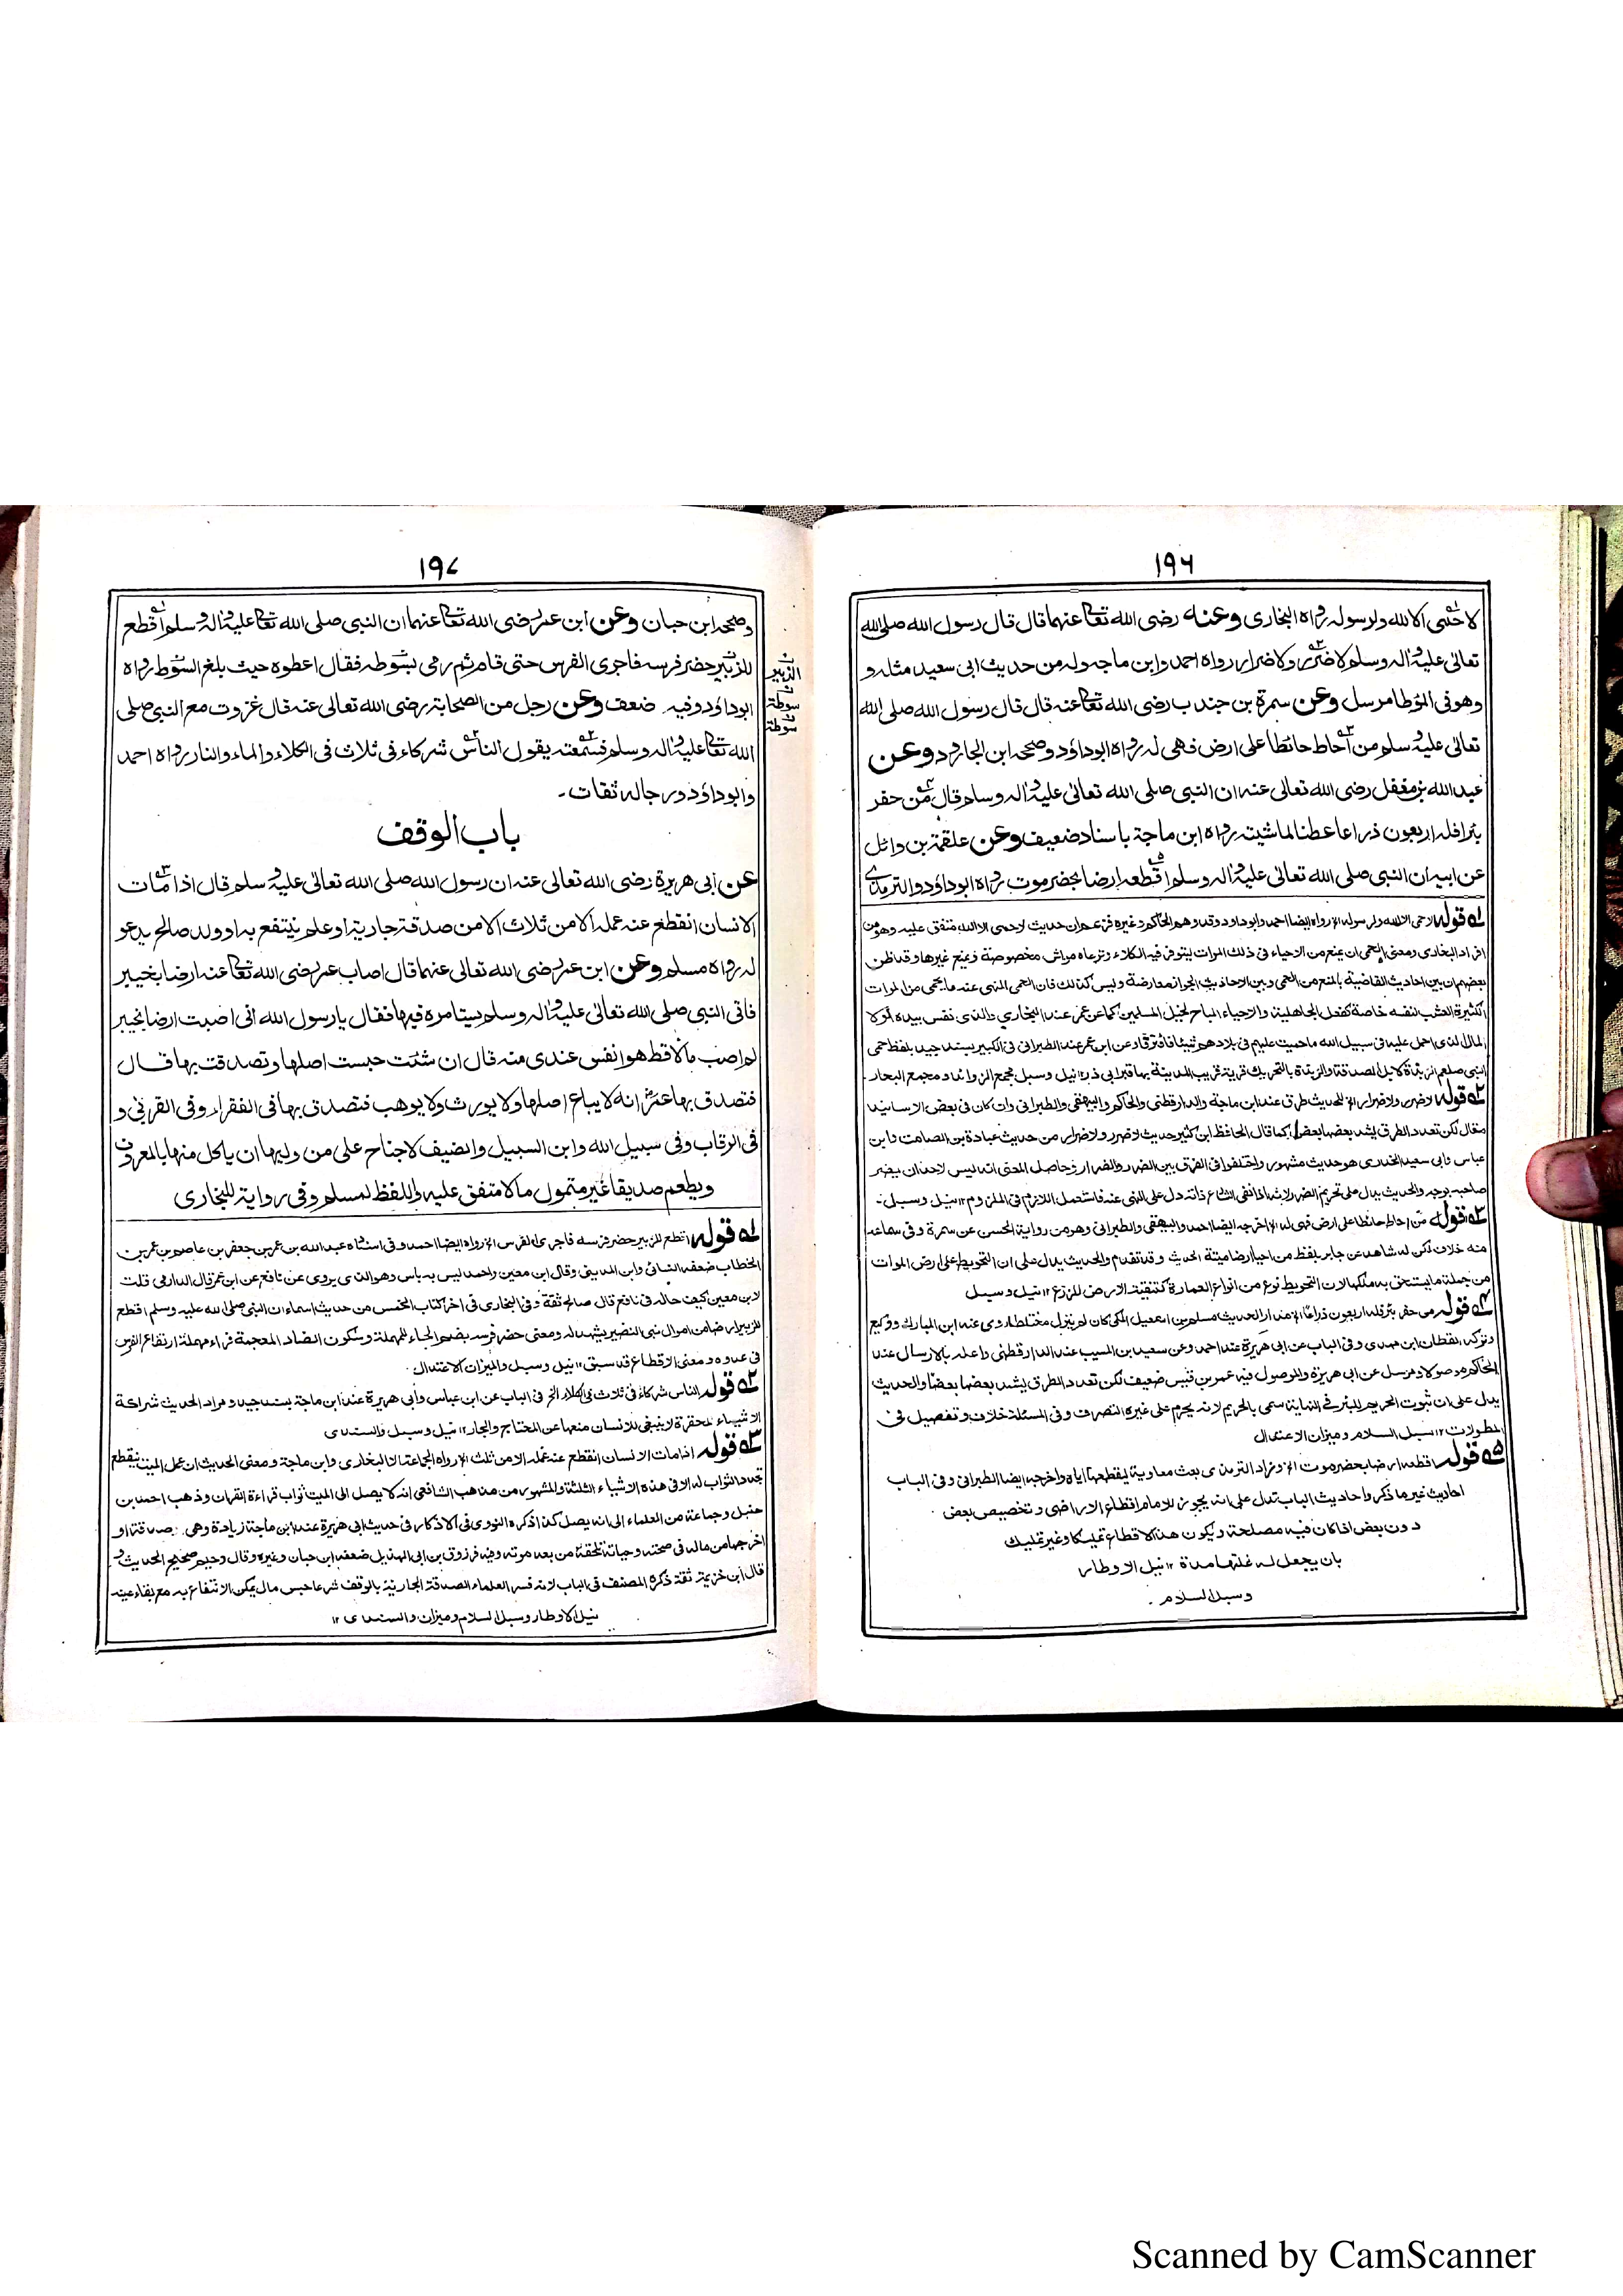 ١٩٦
لا حمى الا لله ولرسوله رواه البخارى وعنه رضى الله تعالى عنهما قال قال رسول الله صلى الله
تعالى عليه واله وسلم لا ضرر ولا ضرار رواه احمد وابن ماجه وله من حديث ابى سعيد مثله و
وهو فى الموطا مرسل وعن سمرة بن جندب رضى الله تعالى عنه قال قال رسول الله صلى الله
تعالى عليه وسلم من احاط حائطا على ارض فهى له رواه ابوداؤد وصححه ابن الجارود وعن
عبد الله بن مغفل رضى الله تعالى عنه ان النبى صلى الله تعالى عليه واله وسلم قال من حفر
بئرا فله اربعون ذراعا عطنا لماشيته رواه ابن ماجة باسناد ضعيف وعن علقمة بن وائل
عن ابيه ان النبى صلى الله تعالى عليه واله وسلم اقطعه ارضا بحضرموت رواه ابوداؤد والترمذى
قوله لا حمى الا لله ولرسوله الخ رواه ايضا احمد وابوداود وقد وهم الحاكم وغيره فزعم ان حديث لا حمى الا لله متفق عليه وهو من
افراد البخارى ومعنى الحمى ان يمنع من الاحياء فى ذلك الموات ليتوفر فيه الكلاء وترعاه مواش مخصوصة ويمنع غيرها وقد ظن
بعضهم ان بين احاديث القاضية بالمنع من الحمى وبين الاحاديث الجواز معارضة وليس كذلك فان الحمى المنهى عنه ما يحمى من الموات
الكثيرة العشب لنفسه خاصة كفعل الجاهلية والاحياء المباح لخيل المسلمين كما عن عمر عند البخاري والذى نفسى بيده لولا
المال الذى احمل عليه فى سبيل الله ما حميت عليهم فى بلادهم شيئا فافترقا وعن ابن عمر عند الطبرانى فى الكبير بسند جيد بلفظ حمى
النبى صلعم الربذة لابل الصدقة والربذة بالتحريك قرية قريب المدينة بها قبر ابى ذر ١٢ نيل وسبل مجمع الزوائد ومجمع البحار
قوله لا ضرر ولا ضرار الخ للحديث طرق عند ابن ماجة والدارقطنى والحاكم والبيهقى والطبرانى وان كان فى بعض الاسانيد
مقال لكن تعدد الطرق يشد بعضها بعضا كما قال الحافظ ابن كثير حديث لا ضرر ولا ضرار من حديث عبادة بن الصامت وابن
عباس وابى سعيد الخدرى هو حديث مشهور واختلفوا فى الفرق بين الضرر والضرار وحاصل المعنى انه ليس لاحد ان يضر
صاحبه بوجه والحديث يدل على تحريم الضرر لانه اذا نفى الشارع ذاته دل على النهى عنه فاستعمل اللازم فى الملزوم ١٢ نيل وسبل -
قوله من احاط حائطا على ارض فهى له الخ اخرجه ايضا احمد والبيهقى والطبرانى وهو من رواية الحسن عن سمرة وفى سماعه
منه خلاف لكن له شاهد عن جابر بلفظ من احيا ارضا ميتة الحديث وقد تقدم والحديث يدل على ان التحويط على ارض الموات
من جملة ما يستحق به ملكها لان التحويط نوع من انواع العمارة كتنقية الارض للزرع ١٢ نيل وسبل
قوله من حفر بئرا فله اربعون ذراعا الخ مدار الحديث مسلم بن اسمعيل المكى كان لم يزل مختلطا روى عنه ابن المبارك ووكيع
وتركه القطان ابن مهدى وفى الباب عن ابى هريرة عند احمد وعن سعيد بن المسيب عند الدارقطنى واعله بالارسال عند
الحاكم موصولا ومرسل عن ابى هريرة والموصول فيه عمر بن قيس ضعيف لكن تعدد الطرق يشد بعضها بعضا والحديث
يدل على ان ثبوت الحريم للبئر فى النهاية سمى بالحريم لانه يحرم على غيره التصرف وفى المسئلة خلاف وتفصيل فى
المطولات ١٢ سبل السلام وميزان الاعتدال
قوله اقطعه ارضا بحضرموت الخ وزاد الترمذى بعث معاوية ليقطعها اياه واخرجه ايضا الطبرانى وفى الباب
احاديث غير ما ذكر واحاديث الباب تدل على انه يجوز للامام اقطاع الاراضى وتخصيص بعض
دون بعض اذا كان فيه مصلحة ويكون هذا الاقطاع تمليكا وغير تمليك
بان يجعل له غلتها مدة ١٢ نيل الاوطار
وسبل السلام -
١٩٧
وصححه ابن حبان وعن ابن عمر رضى الله تعالى عنهما ان النبى صلى الله تعالى عليه واله وسلم اقطع
للزبير حضر فرسه فاجرى الفرس حتى قام ثم رمى بسوطه فقال اعطوه حيث بلغ السوط رواه
ابوداؤد وفيه ضعف وعن رجل من الصحابة رضى الله تعالى عنه قال غزوت مع النبى صلى
الله تعالى عليه واله وسلم فسمعته يقول الناس شركاء فى ثلاث فى الكلاء والماء والنار رواه احمد
وابوداؤد ورجاله ثقات -
الزبير
سوطة
سوطة
باب الوقف
عن ابى هريرة رضى الله تعالى عنه ان رسول الله صلى الله تعالى عليه وسلم قال اذا مات
الانسان انقطع عنه عمله الا من ثلاث الا من صدقة جارية او علم ينتفع به او ولد صالح يدعو
له رواه مسلم وعن ابن عمر رضى الله تعالى عنهما قال اصاب عمر رضى الله تعالى عنه ارضا بخيبر
فاتى النبى صلى الله تعالى عليه واله وسلم يستامره فيها فقال يا رسول الله انى اصبت ارضا بخيبر
لم اصب مالا قط هو انفس عندى منه قال ان شئت حبست اصلها وتصدقت بها قال
فتصدق بها عمر انه لا يباع اصلها ولا يورث ولا يوهب فتصدق بها فى الفقراء وفى القربى و
فى الرقاب وفى سبيل الله وابن السبيل والضيف لا جناح على من وليها ان ياكل منها بالمعروف
ويطعم صديقا غير متمول مالا متفق عليه واللفظ لمسلم وفى رواية للبخارى
قوله اقطع للزبير حضر فرسه فاجرى الفرس الخ رواه ايضا احمد وفى اسناده عبد الله بن عمر بن جعفر بن عاصم بن عمر بن
الخطاب ضعفه النسائى وابن المدينى وقال ابن معين واحمد ليس به باس وهو الذى يروى عن نافع عن ابن عمر قال الدارمى قلت
لابن معين كيف حاله فى نافع قال صالح ثقة وفى البخارى فى اخر كتاب الخمس من حديث اسماء ان النبى صلى الله عليه وسلم اقطع
للزبير ارضا من اموال بنى النضير يشهد له ومعنى حضر فرسه بضم الحاء المهملة وسكون الضاد المعجمة فراء مهملة ارتفاع الفرس
فى عدوه ومعنى الاقطاع قد سبق ١٢ نيل وسبل والميزان الاعتدال -
قوله الناس شركاء فى ثلاث فى الكلاء الخ فى الباب عن ابن عباس وابى هريرة عند ابن ماجة بسند جيد ومراد الحديث شراكة
الاشياء المحقرة لا ينبغى للانسان منعها عن المحتاج والجار ١٢ نيل وسبل والسندى
قوله اذا مات الانسان انقطع عنه عمله الا من ثلث الخ رواه الجماعة الا البخارى وابن ماجة ومعنى الحديث ان عمل الميت ينقطع
تجدد الثواب له الا فى هذه الاشياء الثلثة والمشهور من مذهب الشافعى انه لا يصل الى الميت ثواب قراءة القران وذهب احمد بن
حنبل وجماعة من العلماء الى انه يصل كذا ذكره النووى فى الاذكار فى حديث ابى هريرة عند ابن ماجة زيادة وهى صدقة او
اخرجها من ماله فى صحته وحياته تلحقه من بعد موته وفيه مرزوق بن ابى الهذيل ضعفه ابن حبان وغيره وقال دحيم صحيح الحديث و
قال ابن خزيمة ثقة ذكره المصنف فى الباب لانه فسر العلماء الصدقة الجارية بالوقف شرعا حبس مال يمكن الانتفاع به مع بقاء عينه
نيل الاوطار وسبل السلام وميزان والسندى ١٢
Scanned by CamScanner